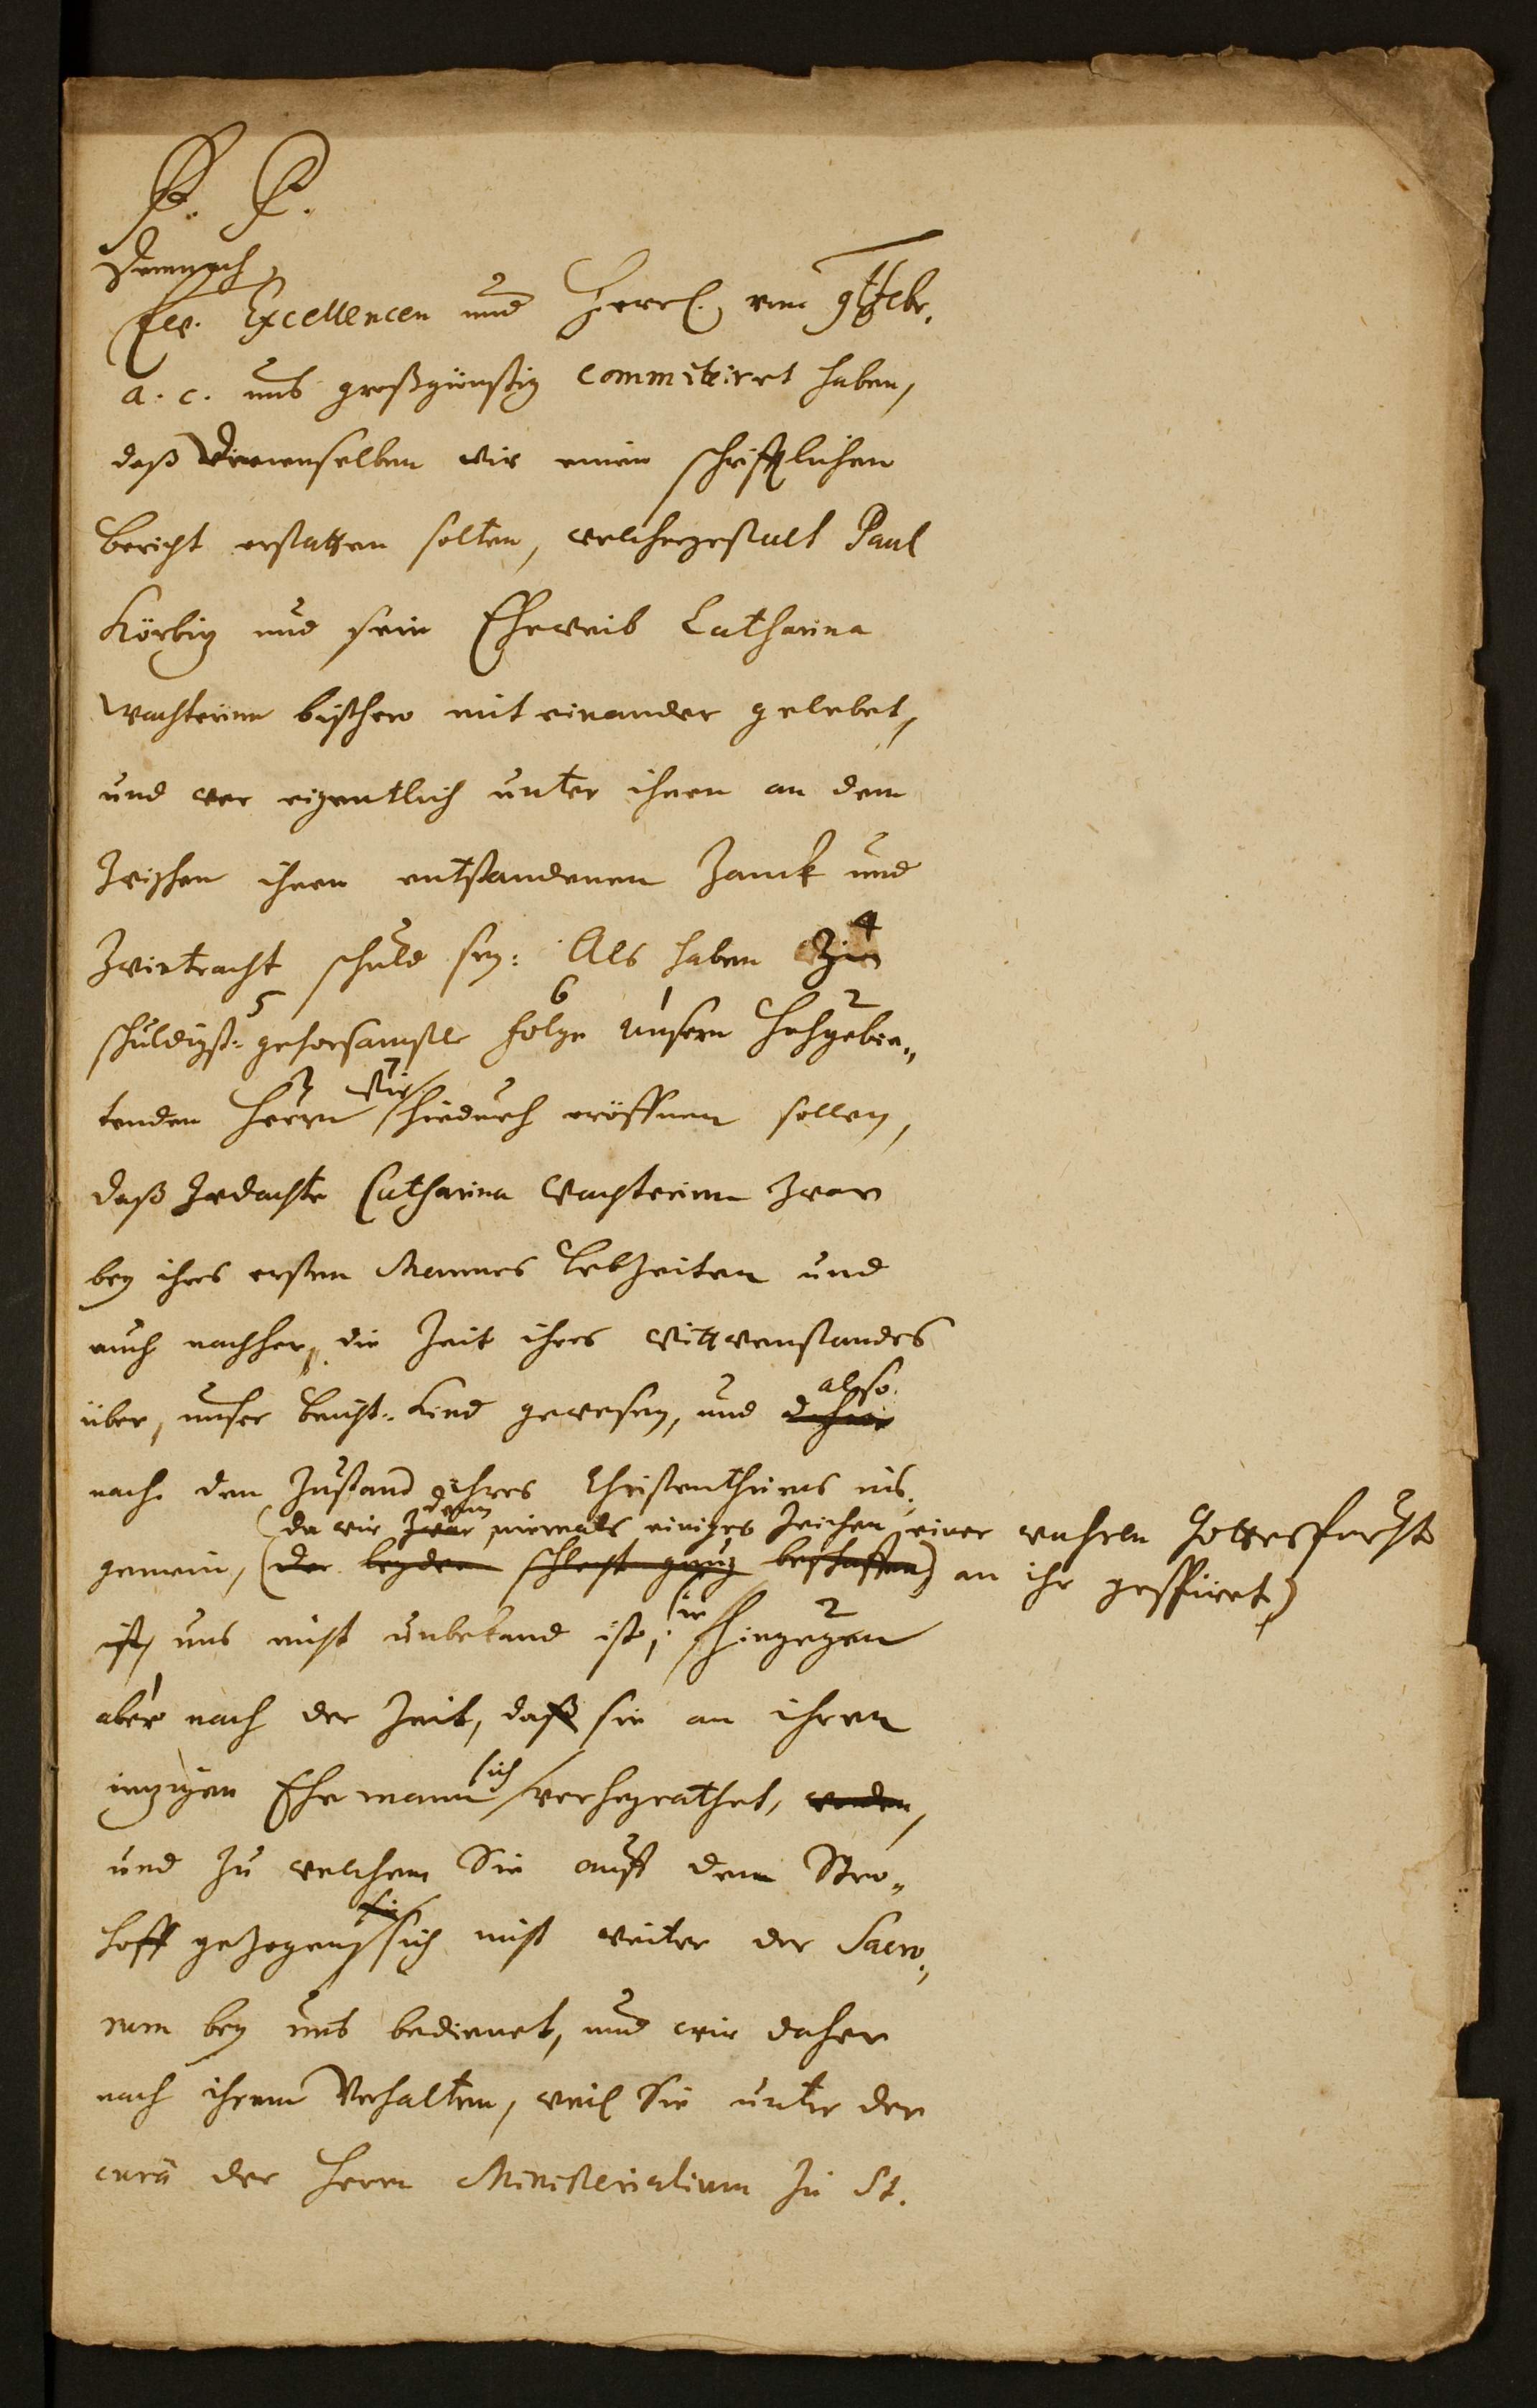 P. P.
Demnach
Ew. Excellencen und Herrl. vom 9 Febr.
a. c. uns großgünstig committiret haben,
daß Denenselben wir einen schrifftlichen
bericht erstatten solten, welchergestalt Paul
Körbig und sein Eheweib Catharina
Wachterinn bißhero mit einander gelebet,
und wer eigentlich unter ihnen an dem
zwischen ihnen entstandenen Zanck und
Zwietracht schuld sey: Als haben Zu 4
schuldigst- 5 gehorsamster folge 6 unsern 1 Hochgebie- 2
tenden Herrn 3 wir 7 hiedurch eröffnen sollen,
daß gedachte Catharina Wachterinn zwar
bey ihres ersten Mannes Lebzeiten und
auch nachher, die Zeit ihres Wittwenstandes
über, unser beicht-Kind gewesen, und daher also
nach dem Zustand ihres Christenthums ins-
(da wir zwar denn niemals einiges Zeichen einer wahren Gottesfurcht
gemein, (der leyder schlecht gnug beschaffen) an ihr gespüret)
ist, uns nicht unbekand ist, sie hingegen 2
aber 1 nach der Zeit, daß sie an ihren
ietzigen Ehemann sich verheyrathet, worden,
und zu welchem Sie auff dem Stro-
hoff gezogen, sie sich nicht weiter der Sacro-
rum bey uns bedienet, und wir daher
nach ihrem Verhalten, weil Sie unter der
curâ der Herrn Ministerialium zu St.